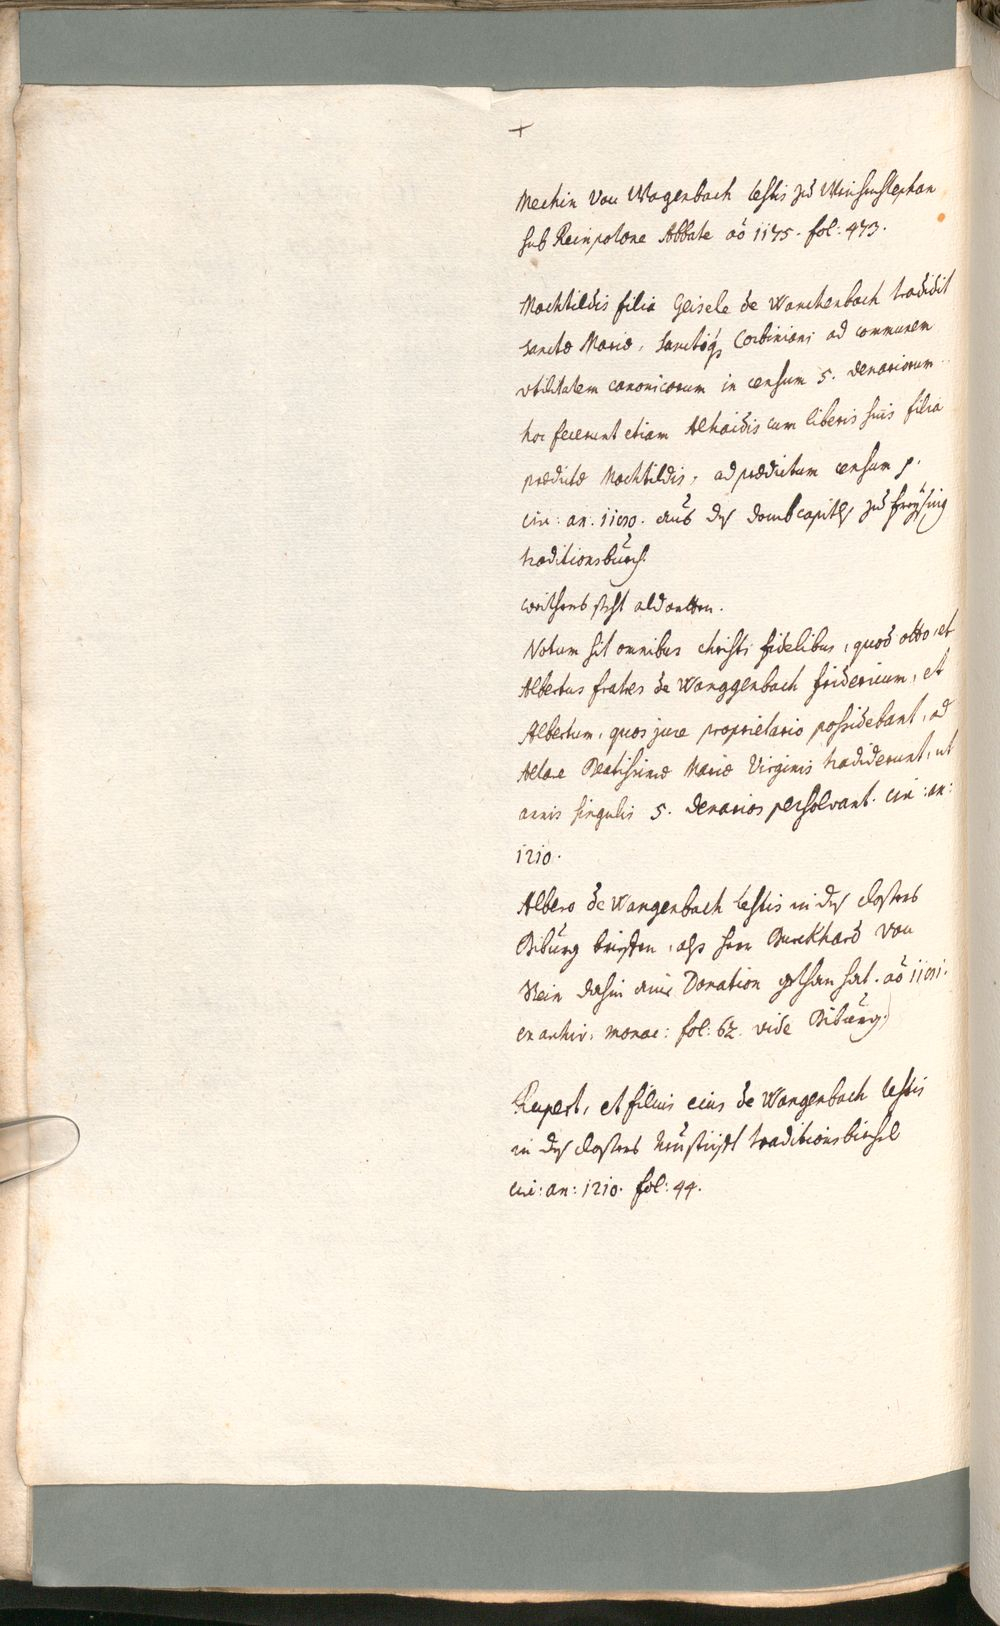 +
Mechin von Wagenbach testis zu Weihenstephan
sub Reinpolone Abbate aõ 1175. fol: 473.
Machtildis filia Geisele de Wanckenbach tradidit
sanctæ Mariæ, Sanctoq3 Corbiniani ad communem
vtilitatem canonicorum in censum 5. denariorum
hoc fecerunt etiam Alhaidis cum liberis suis filia
prædictæ Machtildis, ad prædictum censum p.
circ: an. 1190. aus des Dombcapitls zu Freÿsing
traditionsbuech.
weithers steht aldorten.
Notum sit omnibus christi fidelibus, quod otto, et
Albertus fratres de Wanggenbach fridericum, et
Albertum, quos jure proprietario possidebant, ad
Altare Beatissimæ Mariæ Virginis tradiderunt, ut
annis singulis 5. denarios persolvant. circ: an:
1210.
Albero de Wangenbach testis in des closters
Biburg brieffen, als herr Burckhard von
Stein dahin eine Donation gethan hat. aõ 1191.
ex archiv: monac: fol: 62. vide Biburg.
Rupert, et filius eius de Wangenbach testis
in des closters Neustüfft traditionsbiechl
circ: an: 1210. fol: 44.